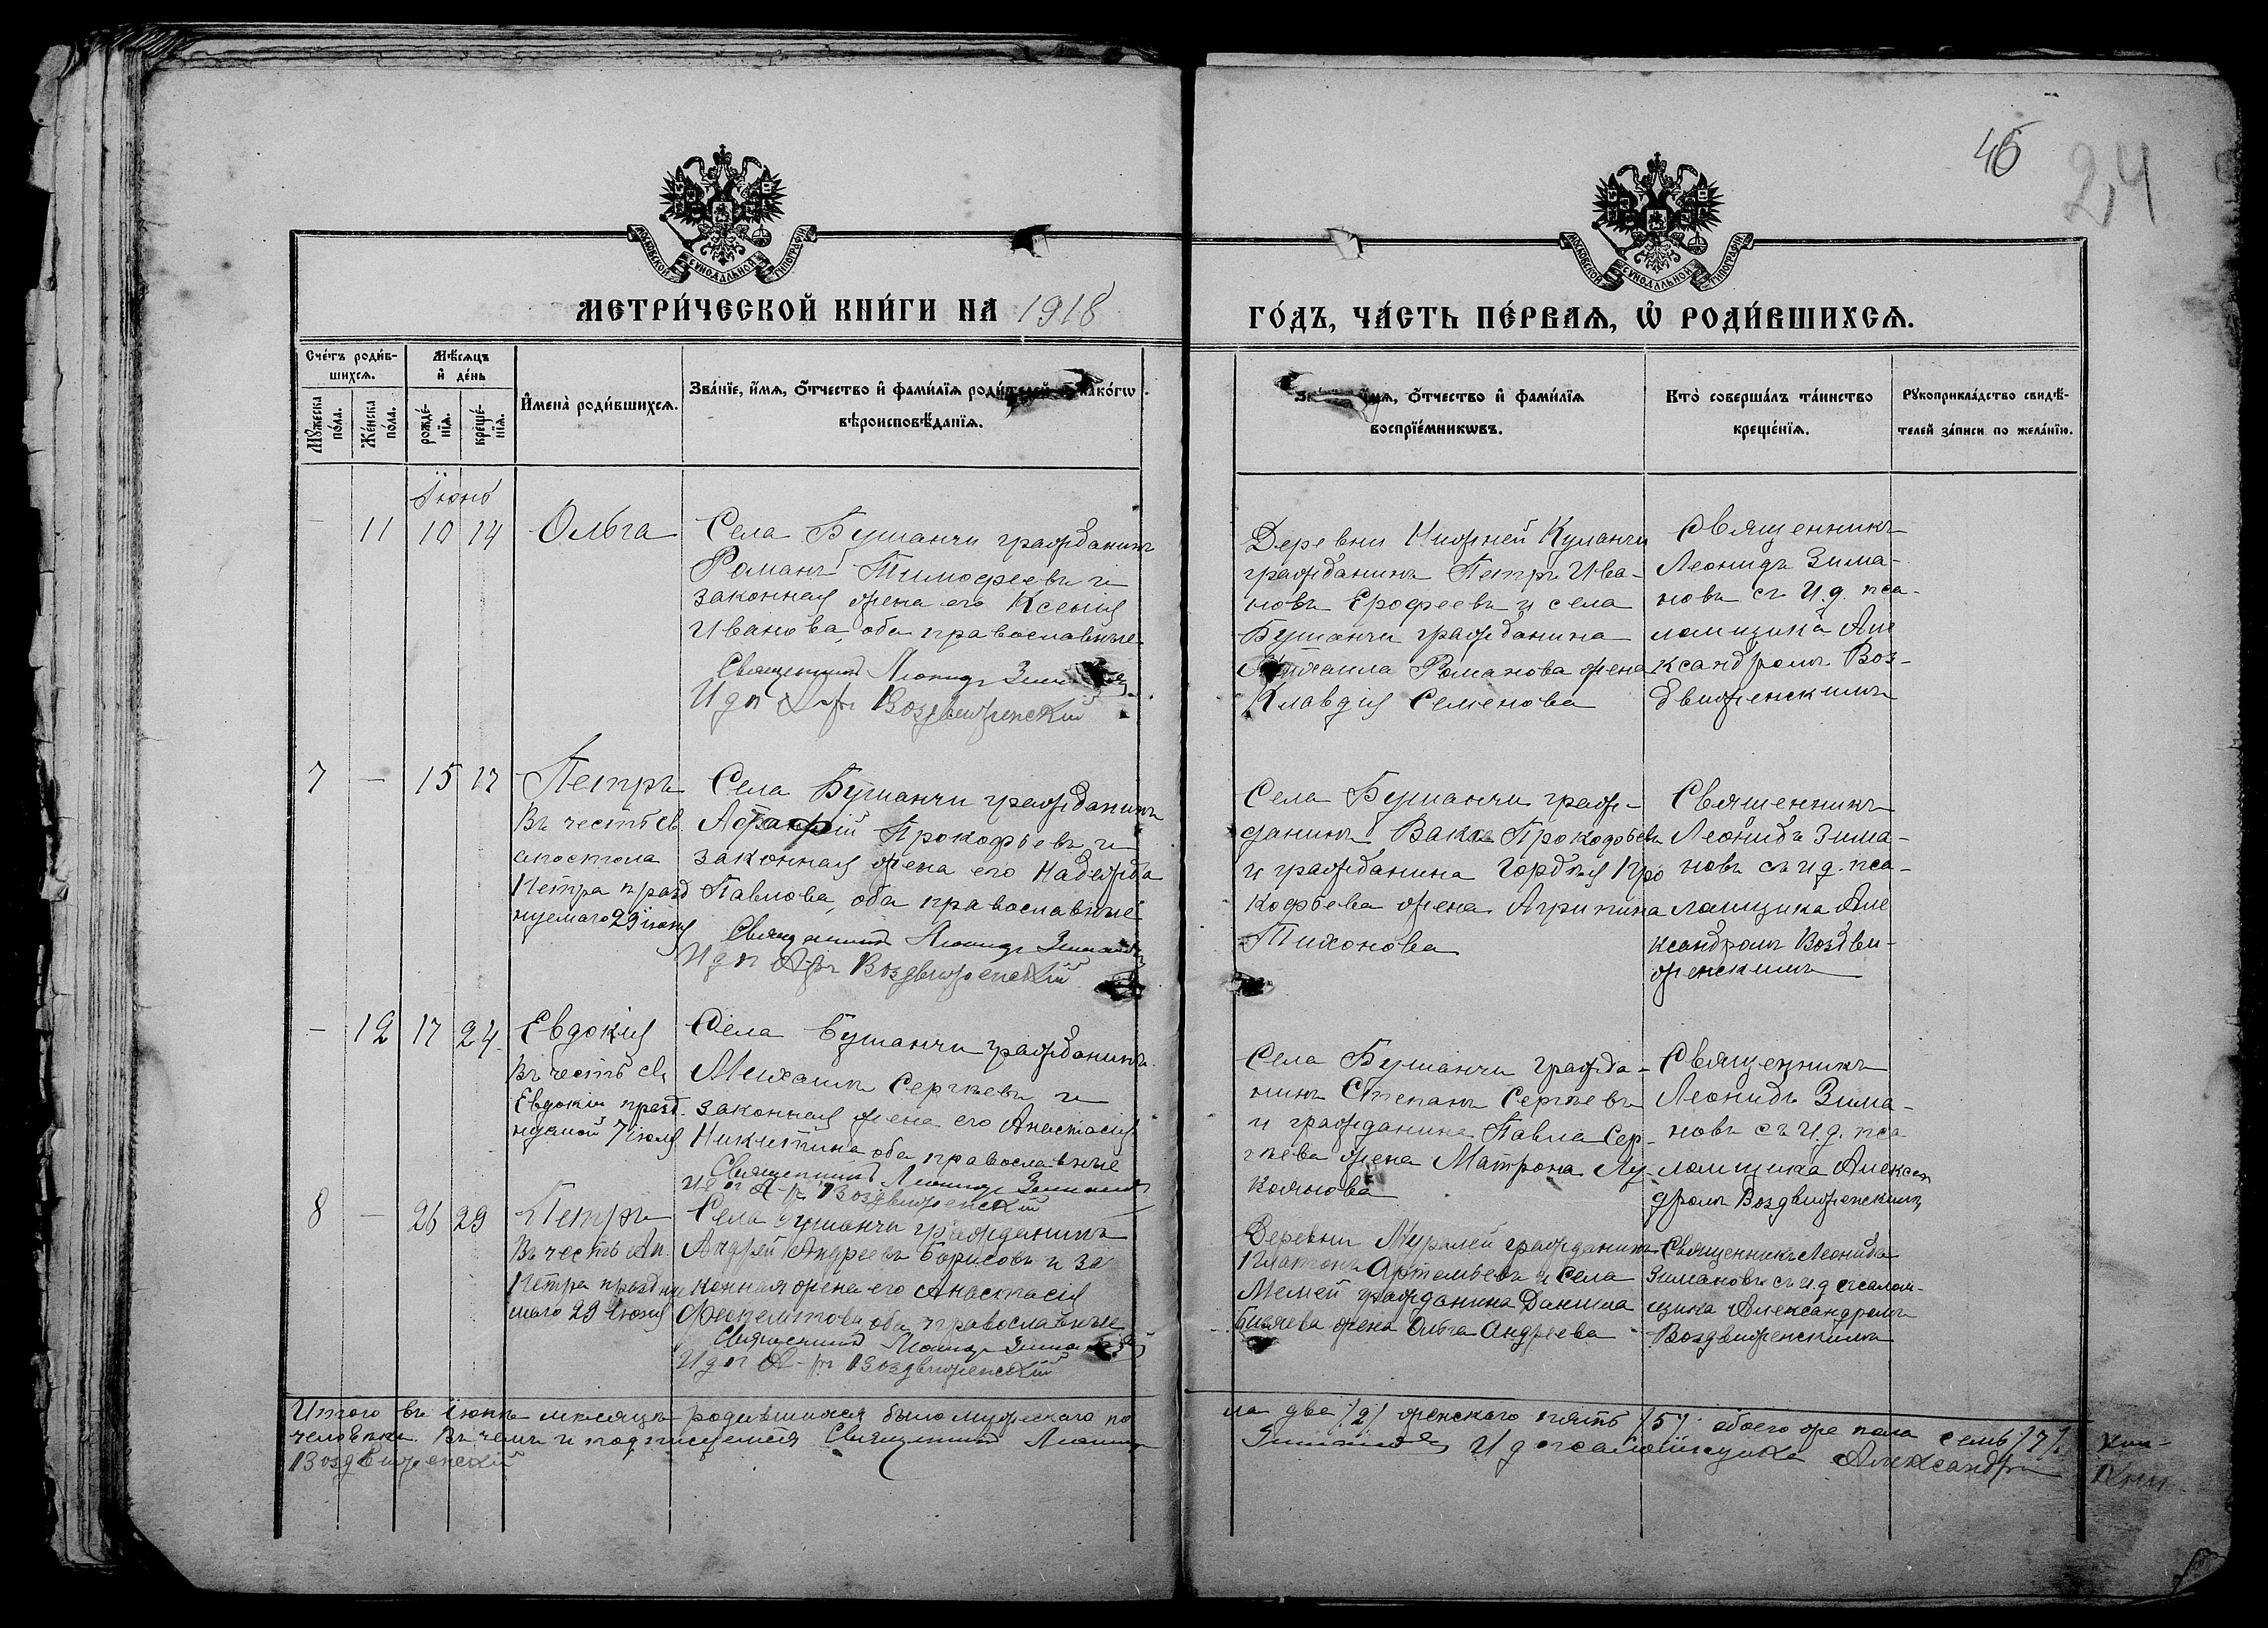 46
24
МОСКОВСКОЙ СѴНОДАЛЬНОЙ ТИПОГРАФІИ
МОСКОВСКОЙ СѴНОДАЛЬНОЙ ТИПОГРАФІИ
МЕТРИ́ЧЕСКОЙ КНИ́ГИ НА 1918
ГО́ДЪ, ЧА́СТЬ ПЕ́РВАѦ, Ѡ҆ РОДИ́ВШИХСѦ.
Сче́тъ роди́в-
шихсѧ.
Мѣ́сѧцъ
и҆ де́нь
Мꙋ́жеска
по́ла.
Же́нска
по́ла.
рожде́-
нїѧ.
креще́-
нїѧ.
И҆мена̀ роди́вшихсѧ.
Зва́нїе, и҆́мѧ, ѻ҆́тчество и҆ фами́лїѧ роди́телей
вѣроисповѣ́данїѧ.
ѻ҆́тчество и҆ фами́лїѧ
воспрїе́мникѡвъ.
Кто̀ соверша́лъ та́инство
креще́нїѧ.
Рꙋкоприкла́дство свидѣ́-
телей за́писи по жела́нїю.
Іюнь
11 10 14 Ольга
Села Бушанчи гражданинъ
Романъ Тимофеевъ и
законная жена его Ксенія
Иванова, оба православные
Священникъ Леонидъ
И д п Ал-ръ Воздвиженскій
Деревни Нижней Куланчи
гражданинъ Петръ Ива-
новъ Ерофеевъ и села
Бушанчи гражданина
Михаила Романова жена
Клавдія Семенова
Священникъ
Леонидъ Зима-
новъ съ И.д. пса-
ломщика Але
ксандромъ Воз-
движенскимъ
7 — 15 17 Петръ
Въ честь св.
апостола
Петра празд
нуемаго 29 іюня
Села Бушанчи гражданинъ
Прокофьевъ и
законная жена его Надежда
Павлова, оба православные
Священникъ Леонидъ Зимановъ
И д п Ал-ръ Воздвиженскій
Села Бушанчи граж-
данинъ Вакх Прокофьевъ
и гражданина Гордѣя Про
кофьева жена Агрипина
Тихонова
Священникъ
Леонидъ Зима-
новъ съ и д. пса-
ломщика Але
ксандромъ Воздви-
женскимъ
— 12 17 24 Евдокія
Въ честь св.
Евдокіи празд.
нуемой 7 іюля
Села Бушанчи гражданинъ
Михаилъ Сергѣевъ и
законная жена его Анастасія
Никитина оба православные
Священникъ Леонидъ Зимановъ
И д п А-ръ Воздвиженскій
Села Бушанчи гражда-
нинъ Степанъ Сергѣевъ
и гражданина Павла Сер-
гѣева жена Матрона Лу-
коянова
Священникъ
Леонидъ Зима-
новъ съ И.д. пса
ломщика Алексан
дромъ Воздвиженскимъ
8 — 26 29 Петръ
Въ честь Ап.
Петра празднуе
маго 29 Іюня
Села Бушанчи гражданинъ
Андрей Андреевъ Борисовъ и за
конная жена его Анастасія
оба православные
Священникъ Леонидъ
И д п А-ръ Воздвиженскій
Деревни Муралей гражданинъ
Платонъ Артемьевъ и села
Мемей гражданина Даниила
жена Ольга Андреева
Священникъ Леонидъ
Зимановъ съ и.д псалом-
щика Александромъ
Воздвиженскимъ
Итого въ Іюнѣ месяцѣ родившихся было мужескаго по
ла два /2/ женскаго пять /5/ обоего же пола семь /7/
человѣкъ. Въ чемъ и подписуемся Священникъ Леонидъ
Зимановъ И д псаломщика Александръ
Воздвиженскій